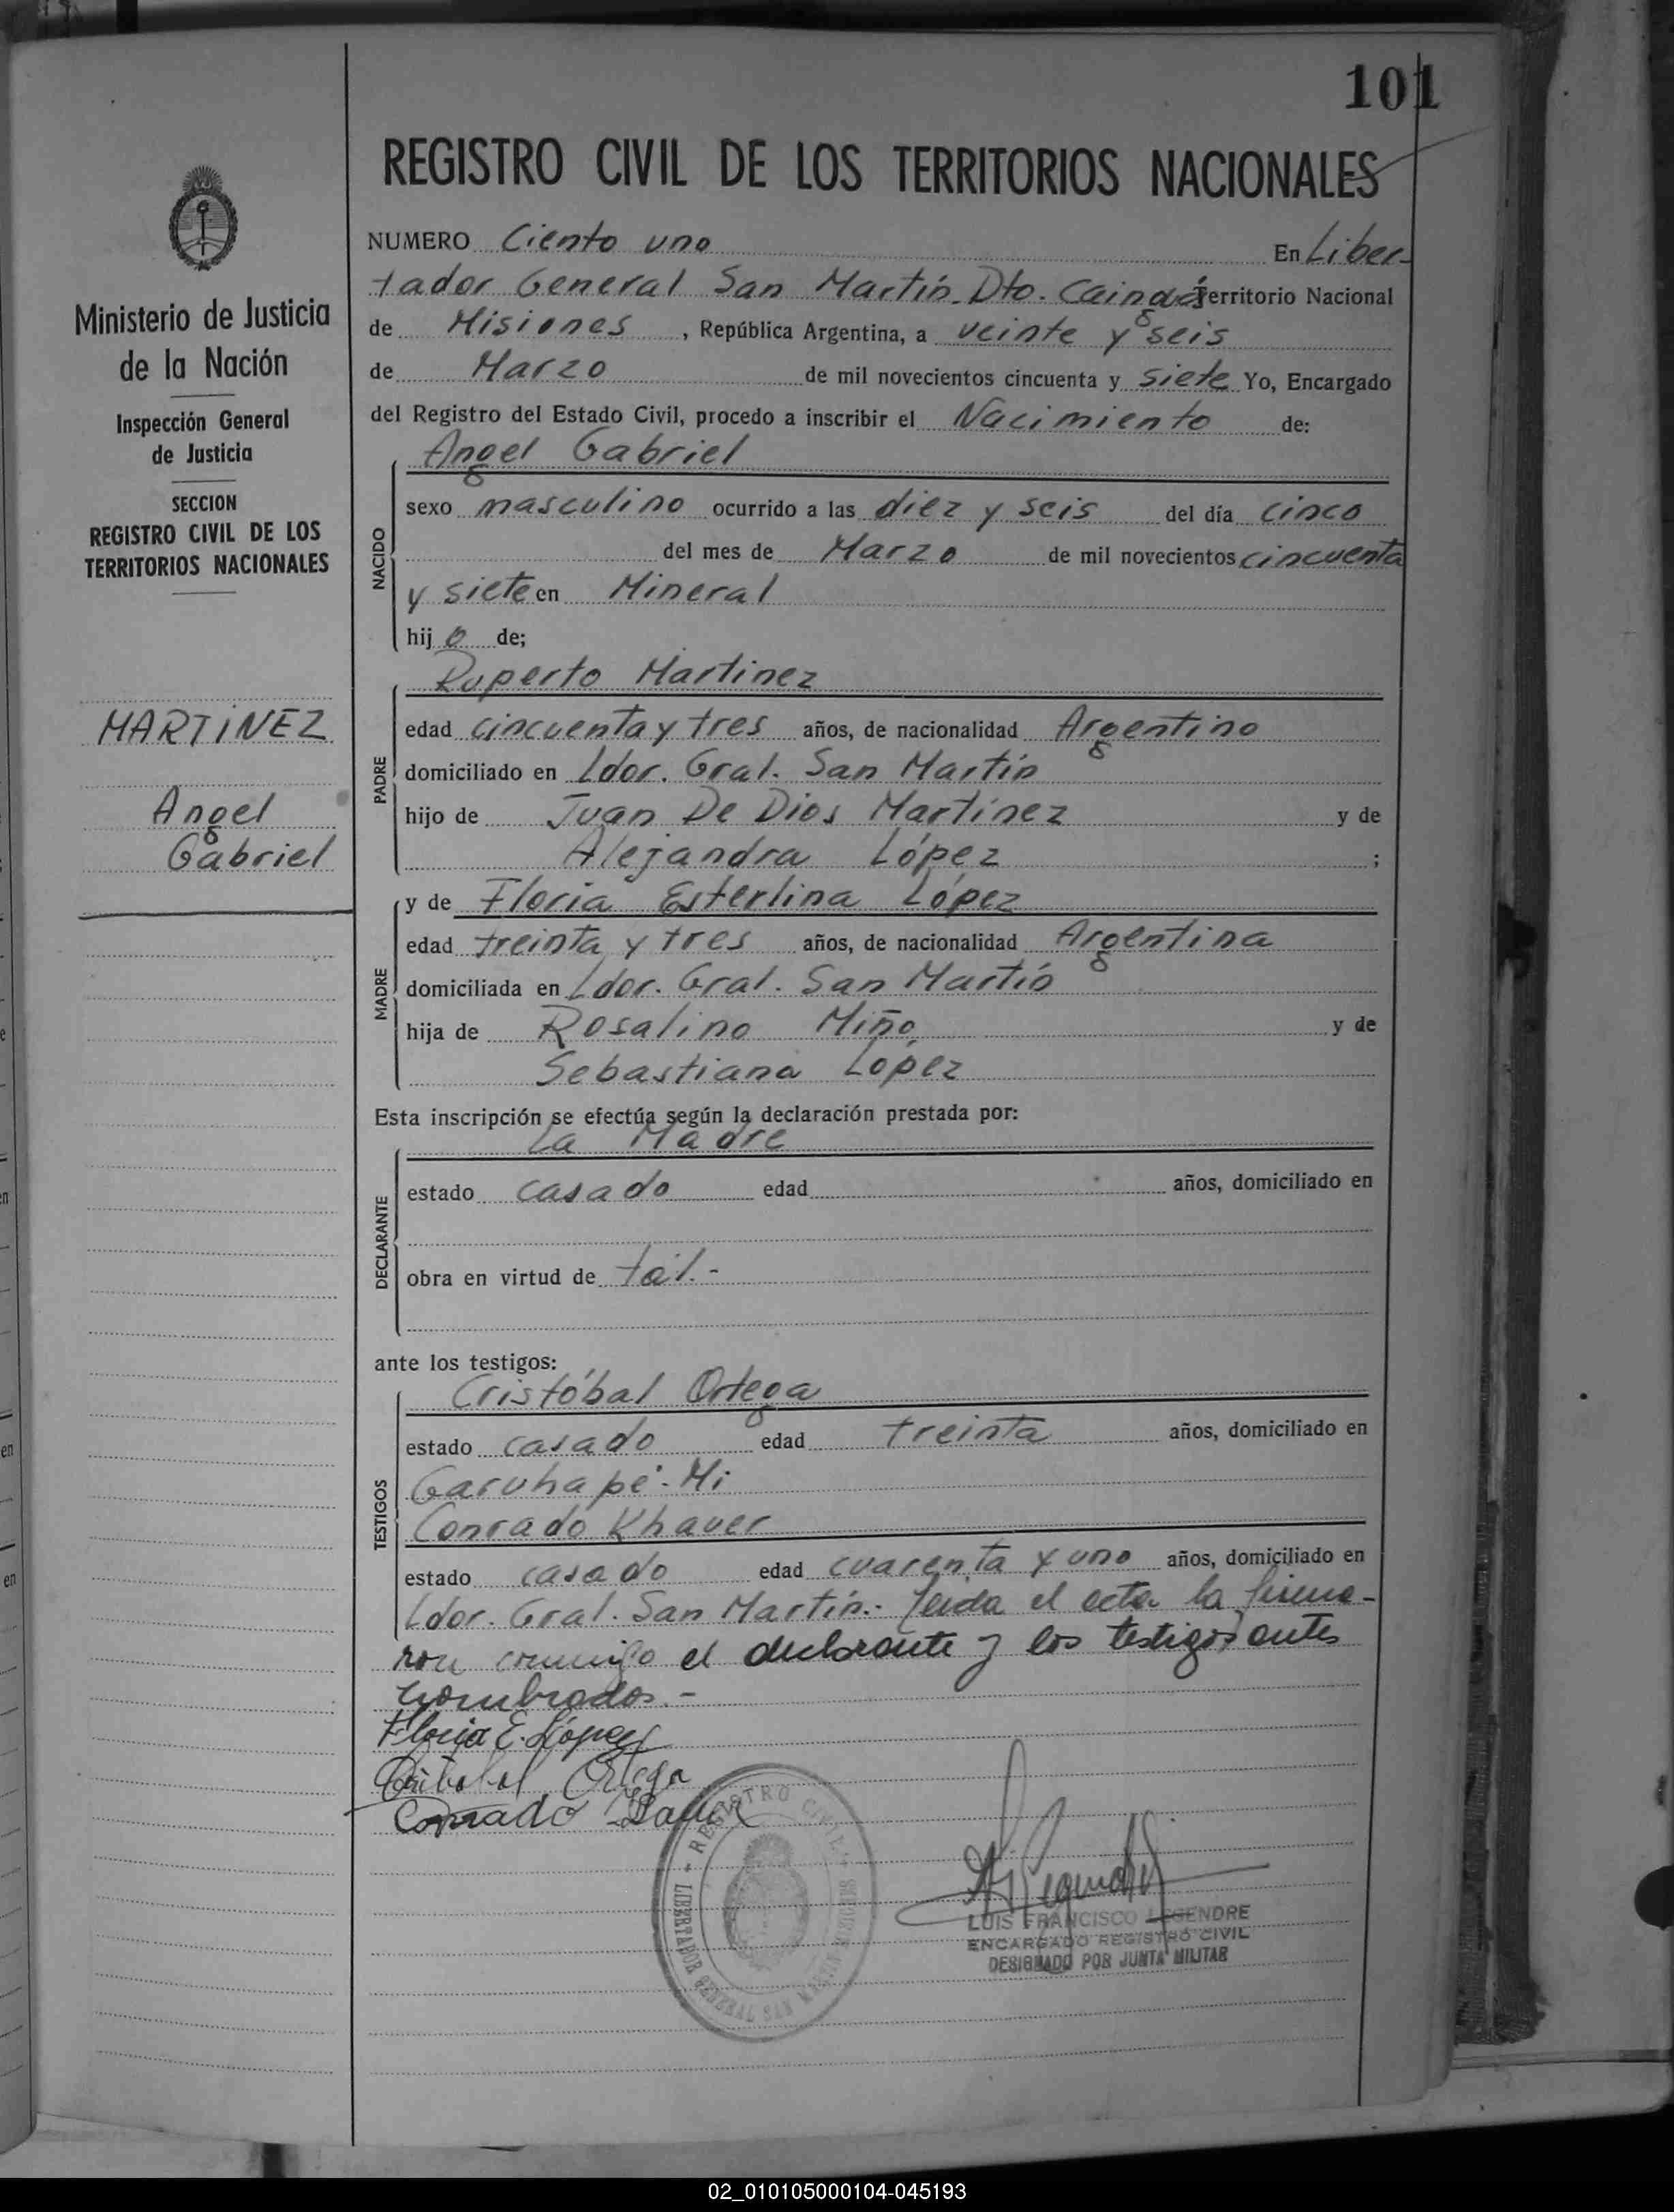 101
REGISTRO CIVIL DE LOS TERRITORIOS NACIONALES
Ministerio de Justicia
de la Nación
Inspección General
de Justicia
SECCION
REGISTRO CIVIL DE LOS
TERRITORIOS NACIONALES
MARTINEZ
Angel
Gabriel
NUMERO Ciento uno En Liber-
tador General San Martín. Dto. Cainguás Territorio Nacional
de Misiones, República Argentina, a veinte y seis
de Marzo de mil novecientos cincuenta y siete Yo, Encargado
del Registro del Estado Civil, procedo a inscribir el Nacimiento de:
NACIDO
Angel Gabriel
sexo masculino ocurrido a las diez y seis del día cinco
del mes de Marzo de mil novecientos cincuenta
y siete en Mineral
hij o de;
PADRE
Ruperto Martinez
edad cincuenta y tres años, de nacionalidad Argentino
domiciliado en Ldor. Gral. San Martín
hijo de Juan De Dios Martínez y de
Alejandra López ;
MADRE
y de Floria Esterlina López
edad treinta y tres años, de nacionalidad Argentina
domiciliada en Ldor. Gral. San Martín
hija de Rosalino Miño y de
Sebastiana López
Esta inscripción se efectúa según la declaración prestada por:
DECLARANTE
La Madre
estado casado edad años, domiciliado en
obra en virtud de tal.-
ante los testigos:
TESTIGOS
Cristóbal Ortega
estado casado edad treinta años, domiciliado en
Garuhapé-Mi
Conrado Khaver
estado casado edad cuarenta y uno años, domiciliado en
Ldor. Gral. San Martín.- Leida el acta la firma-
ron conmigo el declarante y los testigos antes
nombrados.-
Floria E. López
Cristobal Ortega
Conrado
REGISTRO CIVIL
LIBERTADOR GENERAL SAN MARTIN
MISIONES
LUIS FRANCISCO LEGENDRE
ENCARGADO REGISTRO CIVIL
DESIGNADO POR JUNTA MILITAR
02_010105000104-045193